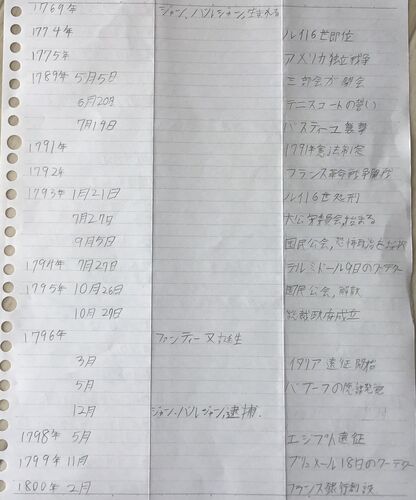 1769年 ジャン、バルジャン、生まれる
1774年 ルイ16世即位
1775年 アメリカ独立戦争
1789年 5月5日 三部会が開会
6月20日 テニスコートの誓い
7月19日 バスティーユ襲撃
1791年 1791年憲法制定
1792年 フランス革命戦争
1793年 1月21日 ルイ16世処刑
7月27日 大公安委員会、始まる
9月5日 国民公会、恐怖政治を
1794年 7月27日 テルミドール9日のクーデター
1795年 10月26日 国民公会、解散
10月27日 総裁政府成立
1796年 ファンティーヌ誕生
3月 イタリア遠征開始
5月 バブーフの陰謀発覚
12月 ジャン、バルジャン、逮捕.
1798年 5月 エジプト遠征
1799年 11月 ブリュメール18日のクーデター
1800年 2月 フランス銀行創設